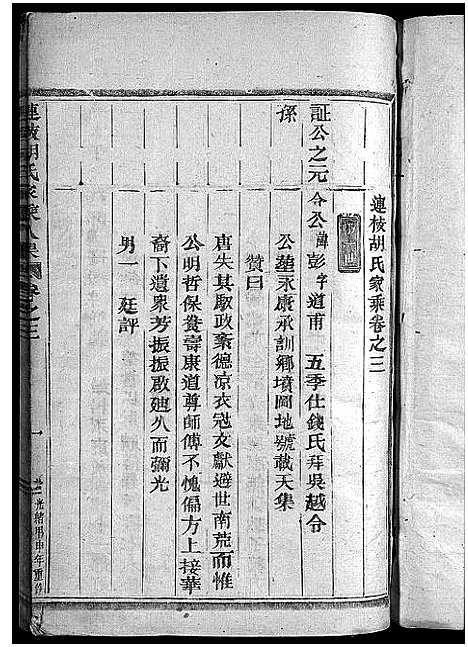 連枝胡氏家乘卷之三
証公之元孫
令公諱彭字道甫 五季仕錢氏拜吳越令
公塟永康承訓鄉墳圖地號載天集
贊曰
唐失其馭政紊德凉衣冠文獻避世南荒而惟
公明哲保養壽康道尊師傅不愧偏方上接華
裔下遺衆芳振振啟廸久而彌光
男一 廷評
連枝胡氏家乘 卷之三 一
光緒 申年重修